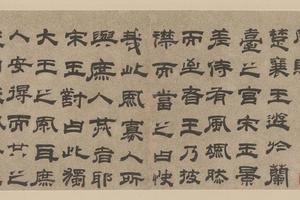 賦
楚襄王遊於蘭
臺之宮宋玉景
差侍有風颯然
而至者王乃披
襟而當之曰快
哉此風寡人所
與庶人共者耶
宋玉對曰此獨
大王之風耳庶
人安得而共之